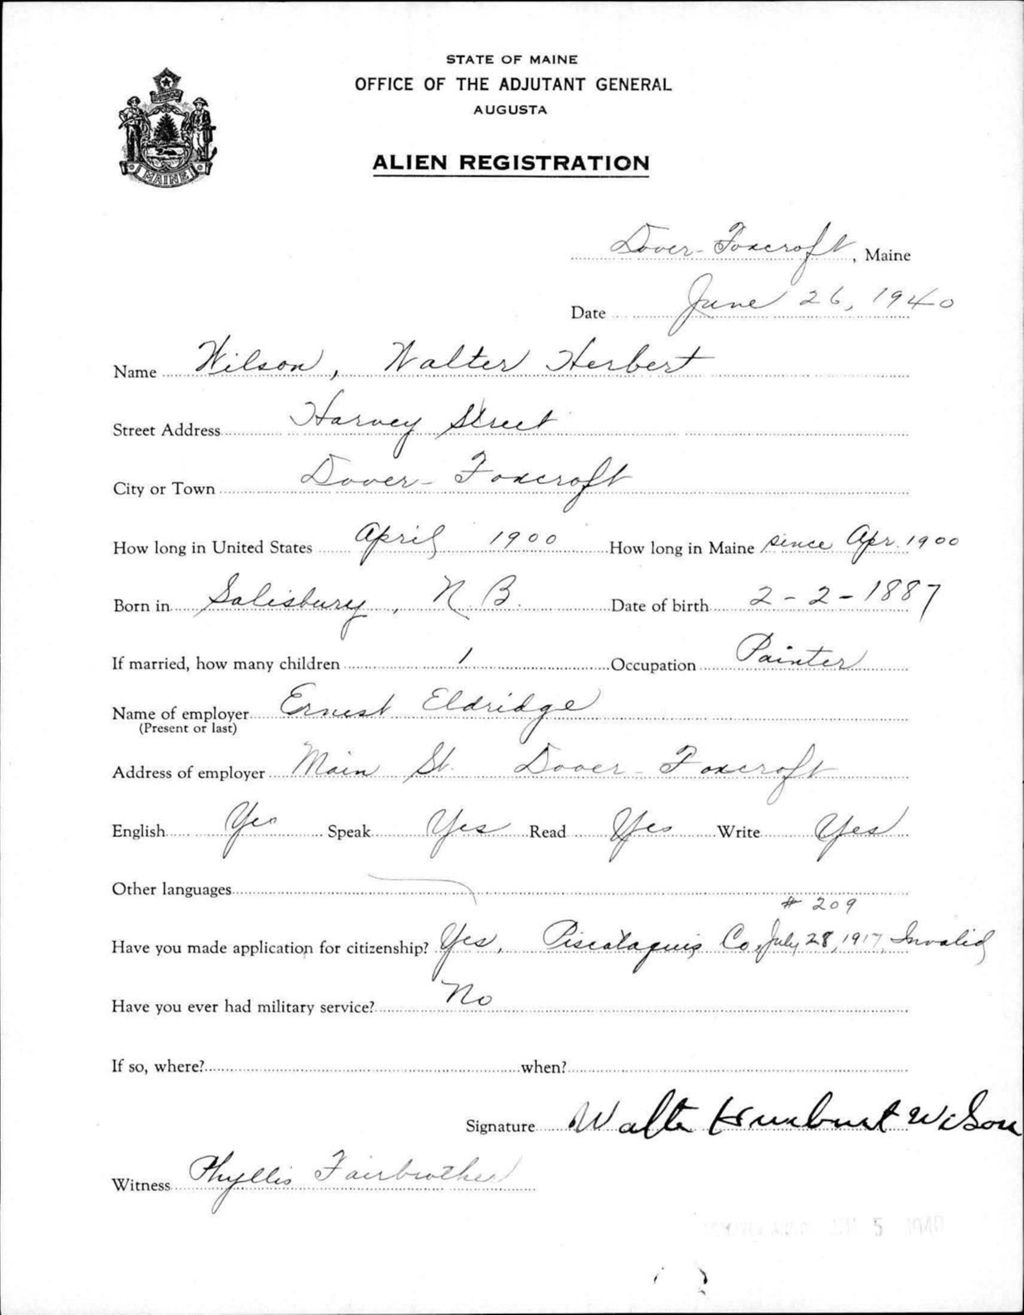 STATE OF MAINE
OFFICE OF THE ADJUTANT GENERAL
AUGUSTA
ALIEN REGISTRATION
MAINE
Dover-Foxcroft, Maine
Date June 26, 1940
Name Wilson, Walter Herbert
Street Address Harvey Street
City or Town Dover-Foxcroft
How long in United States April 1900 How long in Maine since Apr. 1900
Born in Salisbury, N.B. Date of birth 2-2-1887
If married, how many children 1 Occupation Painter
Name of employer Ernest Eldridge
(Present or last)
Address of employer Main St. Dover-Foxcroft
English Yes Speak Yes Read Yes Write Yes
Other languages
# 209
Have you made application for citizenship? Yes, Piscataquis Co. July 28, 1917, Invalid
Have you ever had military service? No
If so, where? when?
Signature Walter Wilson
Witness Phyllis Fairbrother
5 1940